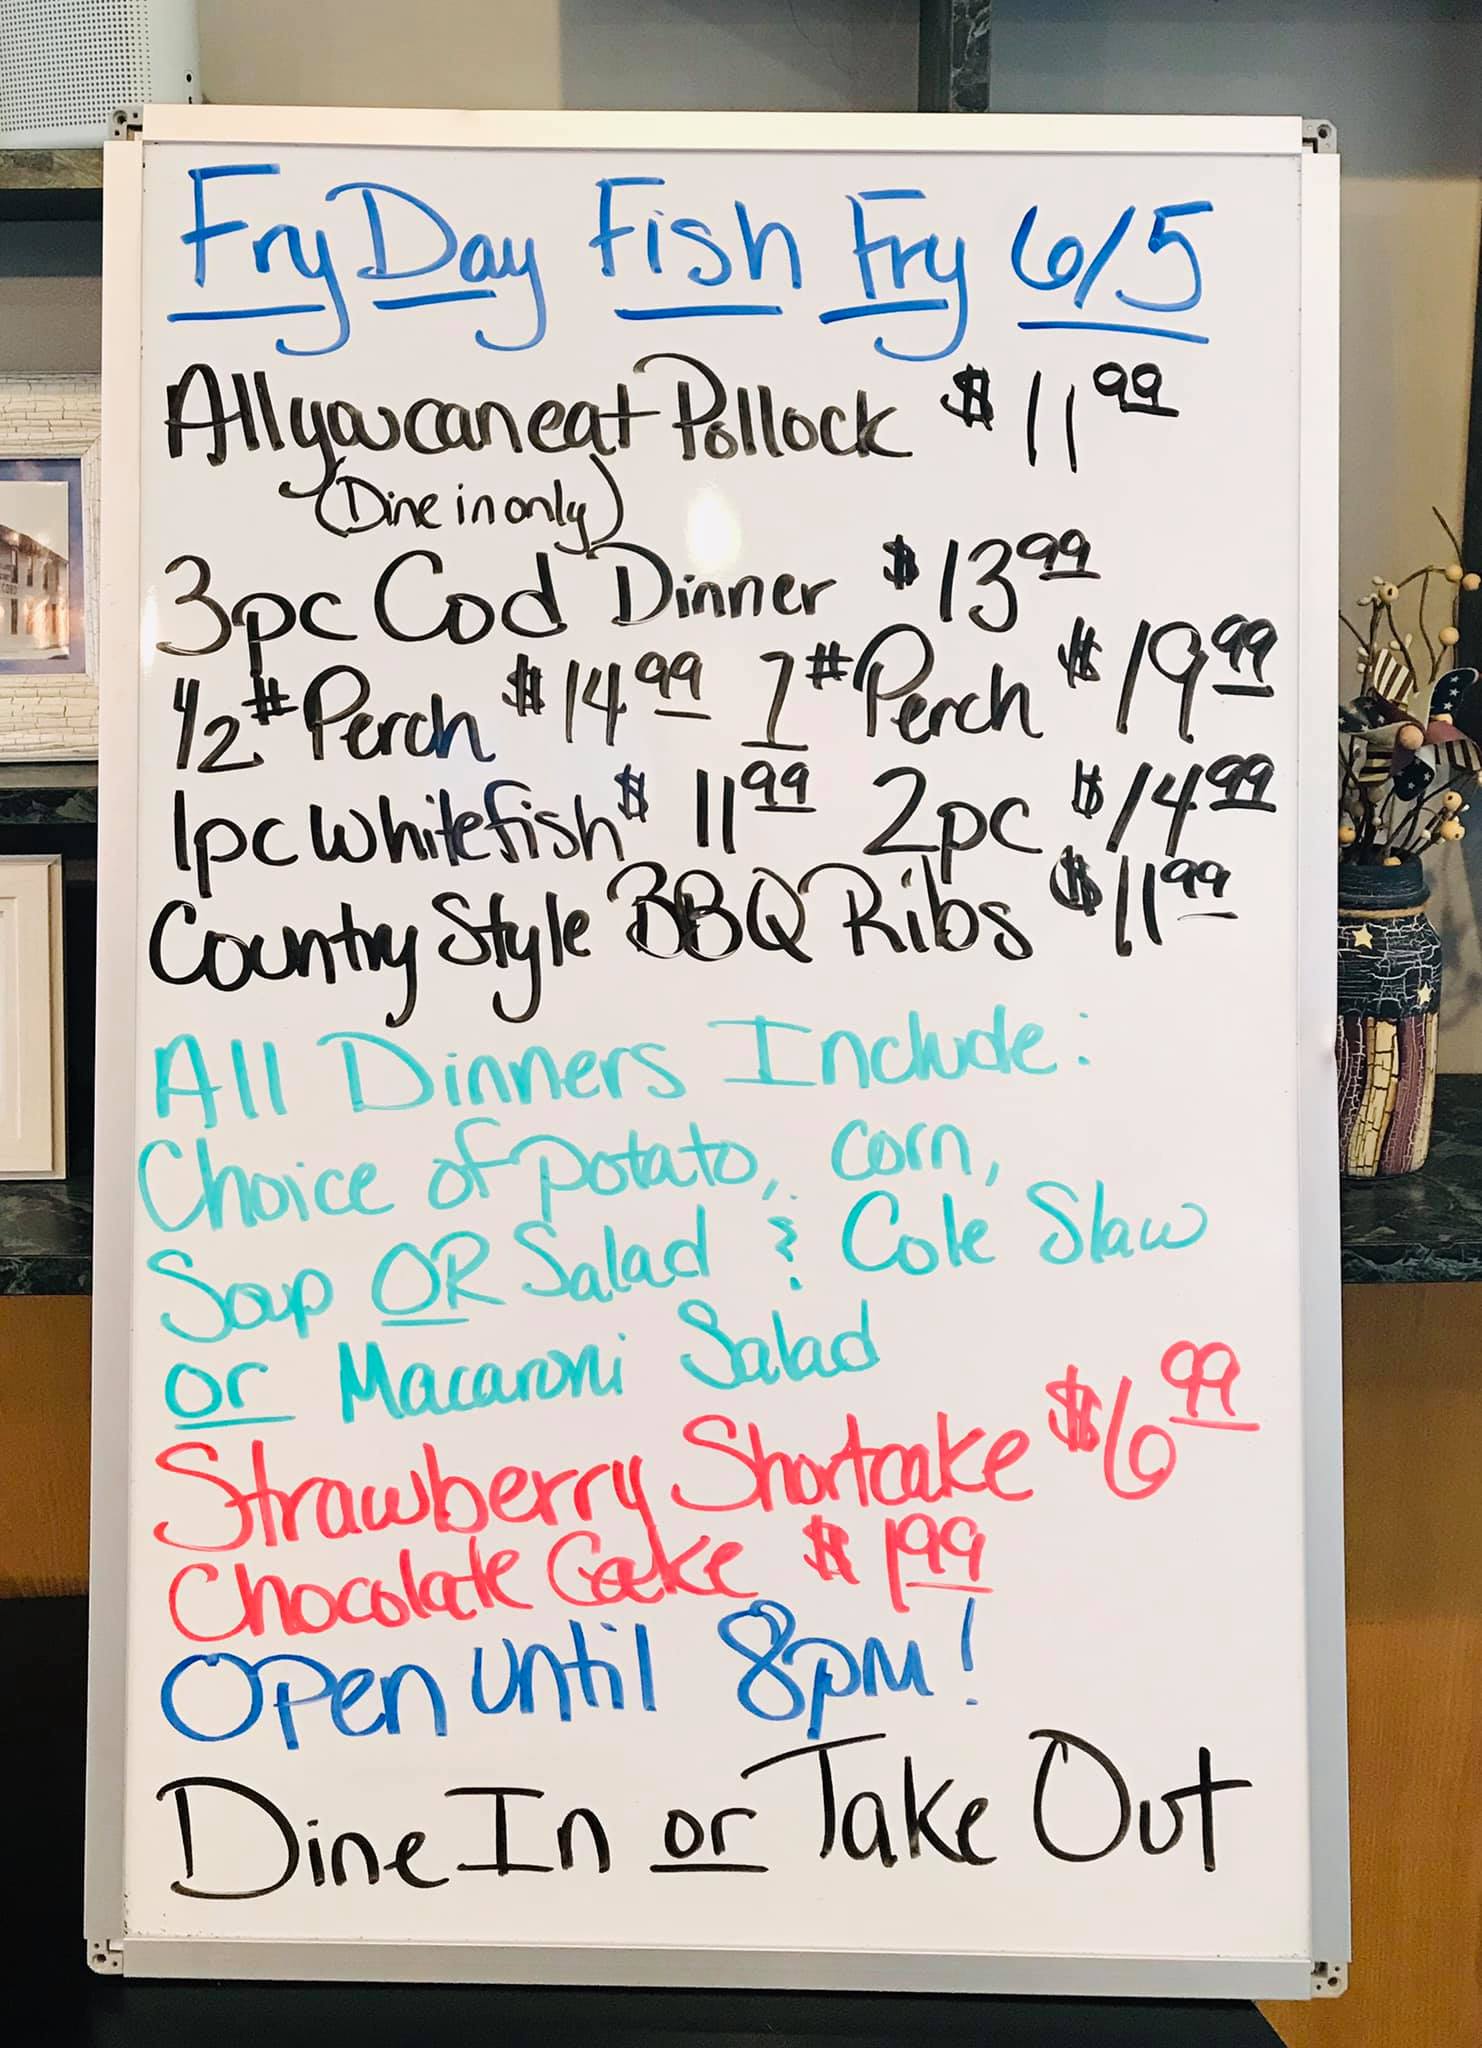 FryDay Fish Fry 6/5
All you can eat Pollock $11.99
(Dine in only)
3pc Cod Dinner $13.99
1/2# Perch $14.99 1# Perch $19.99
1pc Whitefish $11.99 2pc $14.99
Country Style BBQ Ribs $11.99
All Dinners Include:
Choice of potato, corn,
Soup OR Salad & Cole Slaw
or Macaroni Salad
Strawberry Shortcake $6.99
Chocolate Cake $1.99
Open until 8pm!
Dine In or Take Out